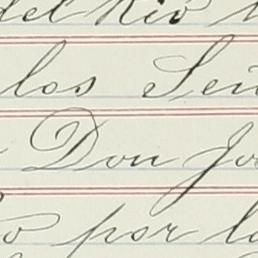 del Rio
los Señ
Don Jo
por la